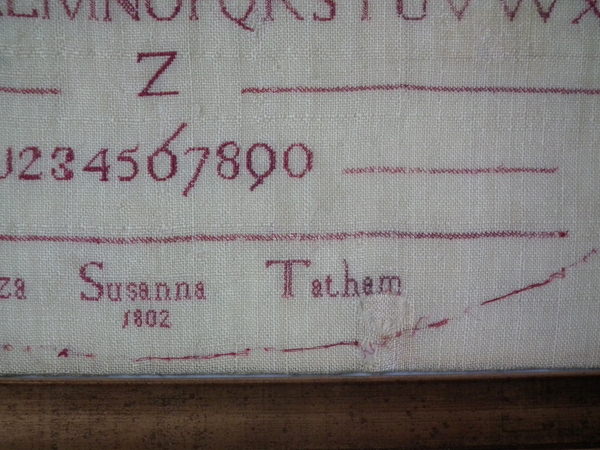 KLMNOPQRSTUVWX
Z
234567890
za Susanna Tatham
1802